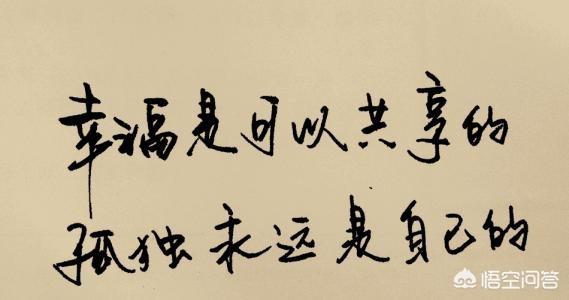 幸福是可以共享的
孤独永远是自己的
悟空问答